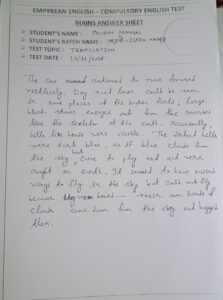 EMPYREAN ENGLISH - COMPULSORY ENGLISH TEST
MAINS ANSWER SHEET
> STUDENT'S NAME :
> STUDENT'S BATCH NAME :
> TEST TOPIC : TRANSLATION
> TEST DATE :
The car continued to move forward
restlessly. Dry and could be seen
in some places of the broken ; large
black stones emerged out from the
like the skeleton of the earth. Occasionally,
hills like were visible. The hills
were dark blue, as if blue clouds from
the sky had come to play and and were
caught on earth. It seemed to have
wings to fly in the sky but could not fly
because — their own kinds of
clouds came from the sky and hugged
them.